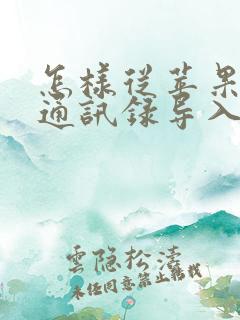 怎樣從苹果
通訊錄导入
雲隐松濤
未经同意禁止转载